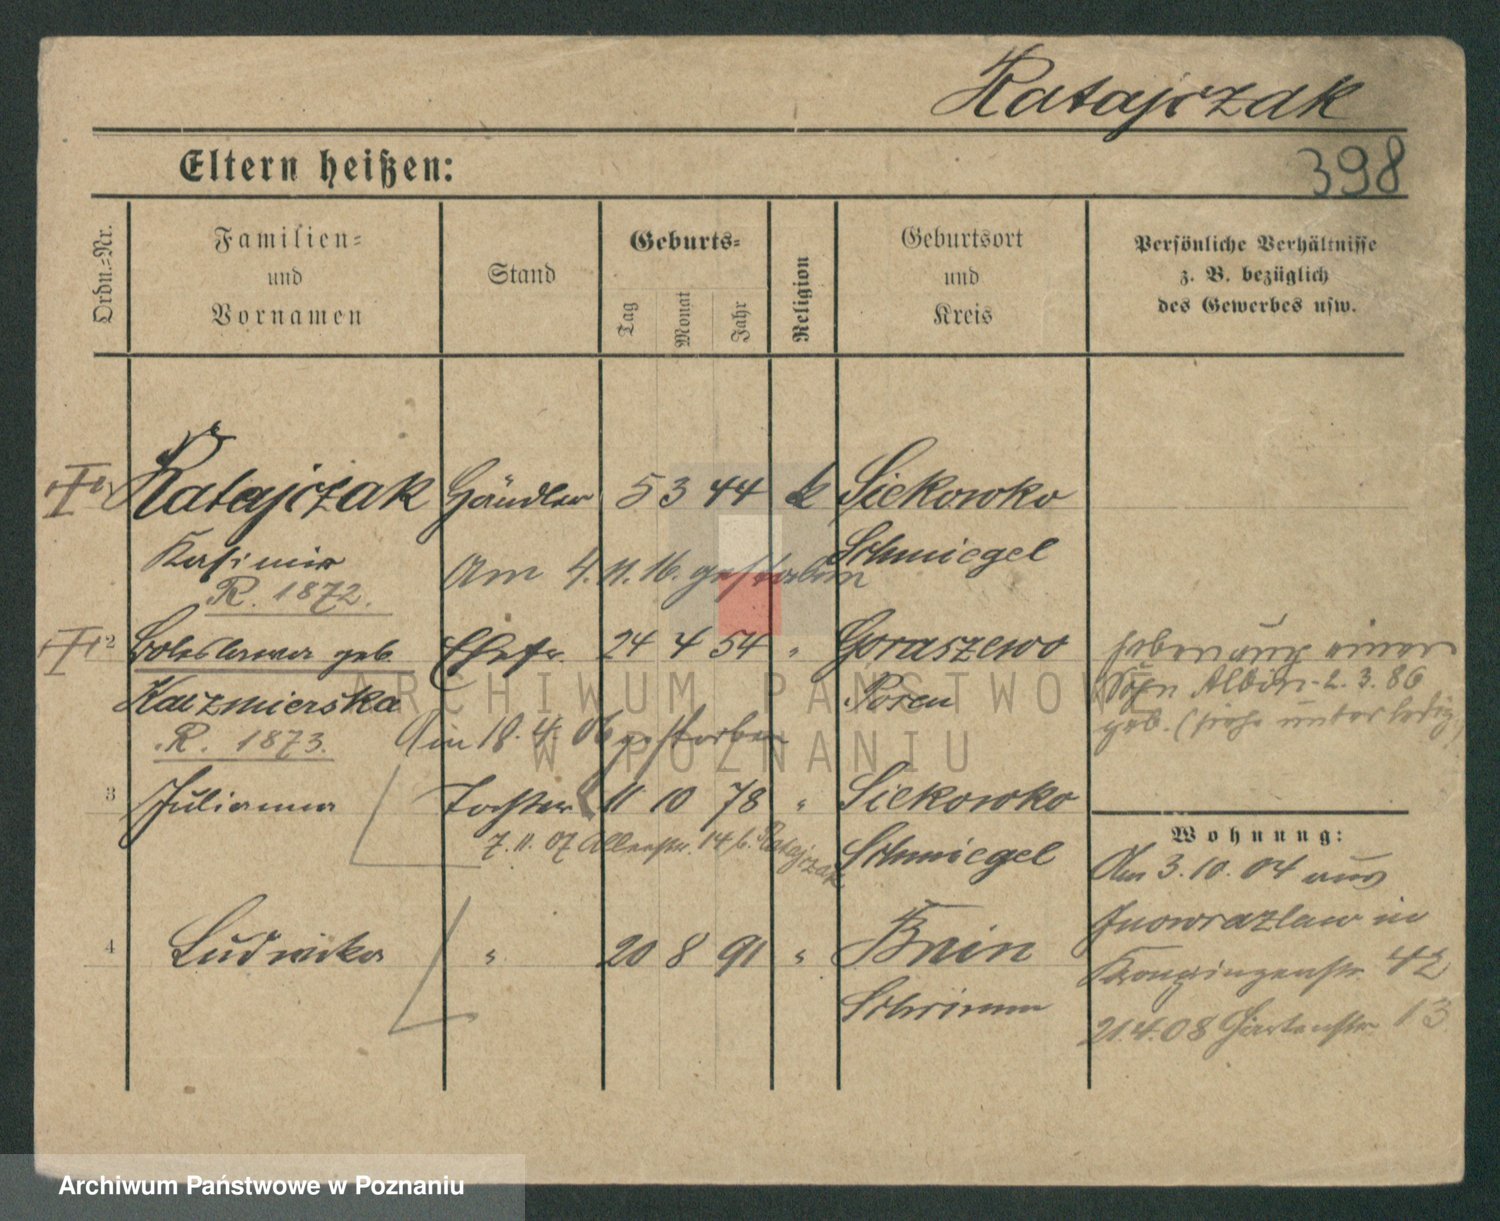 Ratajczak
Eltern heißen:
398
Ordn.-Nr.
Familien-
und
Vornamen
Stand
Geburts-
Tag
Monat
Jahr
Religion
Geburtsort
und
Kreis
Persönliche Verhältnisse
z. B. bezüglich
des Gewerbes usw.
Ratajczak Händler 5 3 44 k Siekowko
Kasimir Schmiegel
Am 4. 11. 16. gestorben
R. 1872.
2 Boleslawa geb. Ehefr. 24 4 54 " Goraszewo
Kaczmierska Posen
R. 1873. Am 18. 4. 06 gestorben
haben noch einen
Sohn Albin 2. 3. 86
geb. (siehe unter ledig)
3 Julianna Tochter 11 10 78 " Siekowko
7. 11. 07 14 b. Ratajczak
Schmiegel
4 Ludwika " 20 8 91 " Bnin
Schrimm
Wohnung:
Am 3. 10. 04 aus
Inowrazlaw in
Kronprinzenstr. 42
21. 4. 08 Gartenstr. 13
ARCHIWUM PAŃSTWOWE
W POZNANIU
Archiwum Państwowe w Poznaniu